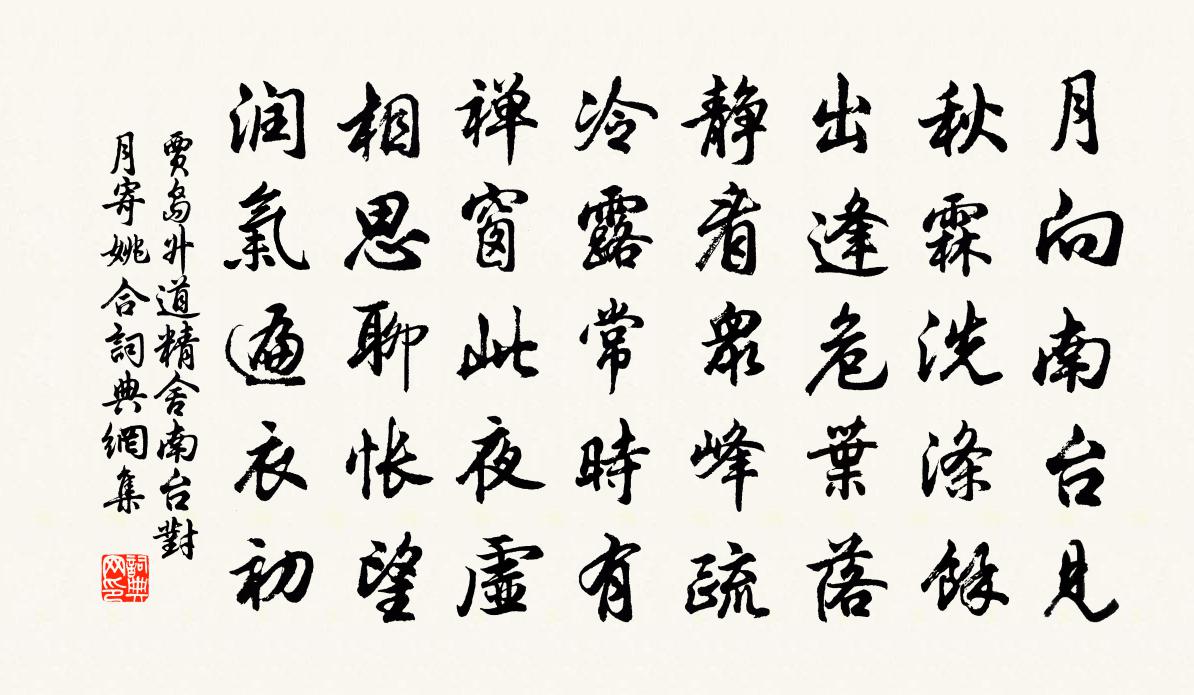 月向南台見
秋霖洗滌餘
出逢危葉落
静看衆峰疏
冷露常時有
禅窗此夜虛
相思聊怅望
润氣遍衣初
賈島升道精舍南台對
月寄姚合詞典網集
詞典网印